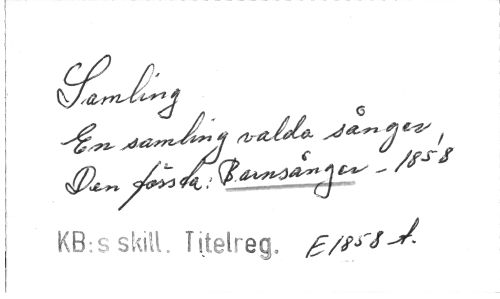 Samling
En samling valda sånger,
Den första: Barnsånger - 1858
KB:s skill. Titelreg. E 1858 A.